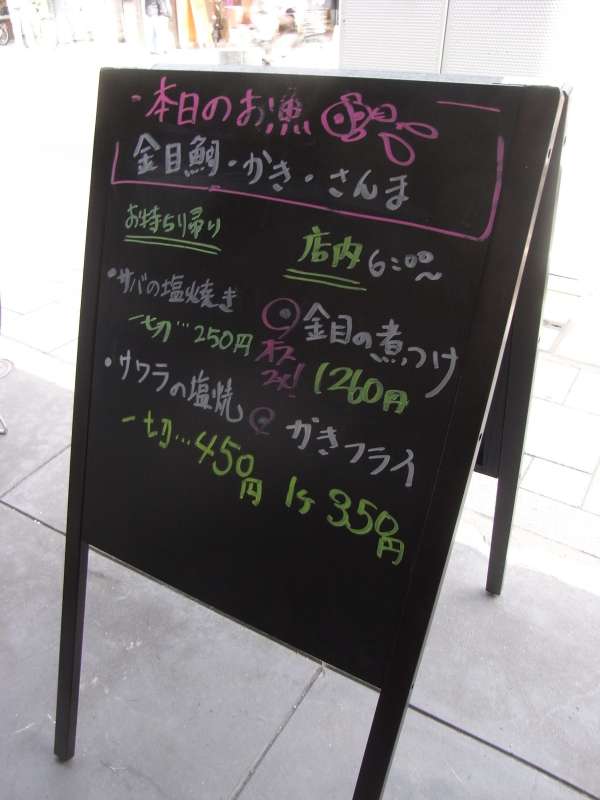 ・本日のお漁
金目鯛・かき・さんま
お持ち帰り
・サバの塩焼き
一切…250円
・サワラの塩焼
一切…450円
店内 6:00～
金目の煮つけ
オススメ!
1260円
かきフライ
1ヶ350円